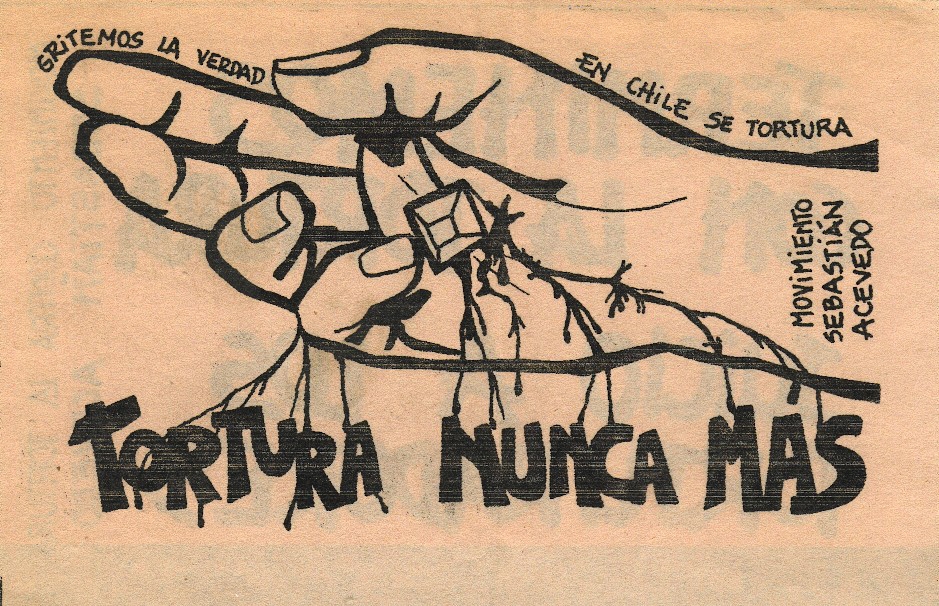 GRITEMOS LA VERDAD
EN CHILE SE TORTURA
MOVIMIENTO
SEBASTIÁN
ACEVEDO
TORTURA NUNCA MAS